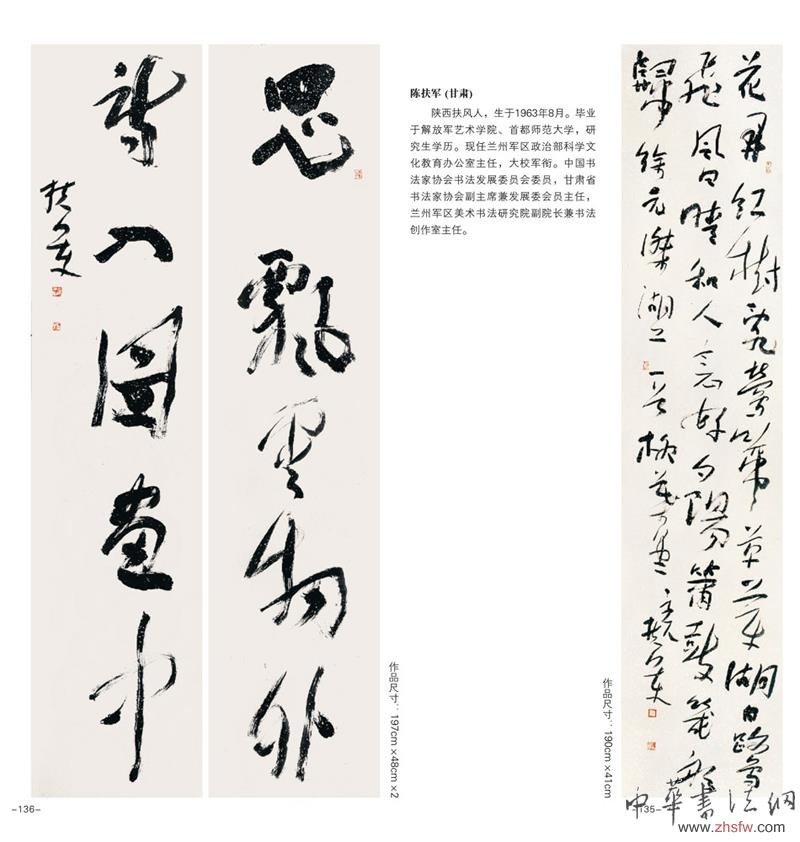 思飄雲物外
詩入圖畫中
扶軍
作品尺寸：197cm×48cm×2
-136-
陈扶军 (甘肃)
陕西扶风人，生于1963年8月。毕业
于解放军艺术学院、首都师范大学，研
究生学历。现任兰州军区政治部科学文
化教育办公室主任，大校军衔。中国书
法家协会书法发展委员会委员，甘肃省
书法家协会副主席兼发展委会员主任，
兰州军区美术书法研究院副院长兼书法
创作室主任。
花開紅樹亂鶯啼草長平湖白鷺
飛風日晴和人意好夕陽簫鼓幾船
歸徐元傑湖上一首 扶軍
作品尺寸：190cm×41cm
-135-
中華書法網
www.zhsfw.com